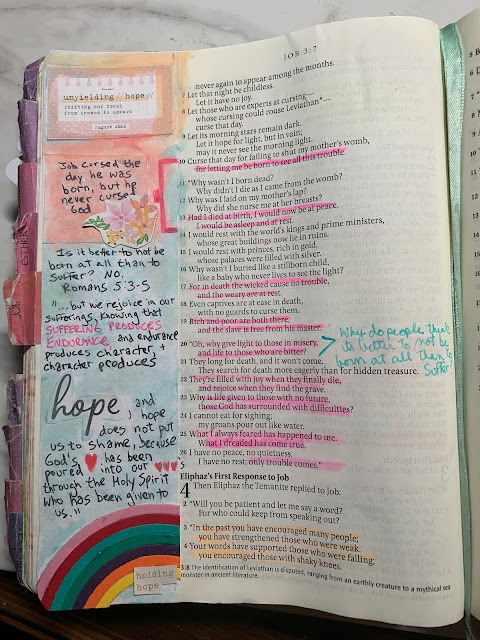 unyielding //hope//
shifting our focus
from inward to upward
august 2022
Job cursed the
day he was
born, but he
never cursed
God
Is it better to not be
born at all than to
suffer? NO.
Romans 5:3-5
"...but we rejoice in our
sufferings, knowing that
SUFFERING PRODUCES
ENDURANCE, and endurance
produces character, +
character produces
hope, and
hope
does not put
us to shame, because
God's ♥ has been
poured into our ♥♥♥
through the Holy Spirit
who has been given to
us."
holding
hope
JOB
ESTHER
JOB 3:7
never again to appear among the months.
7 Let that night be childless.
Let it have no joy.
8 Let those who are experts at cursing—
whose cursing could rouse Leviathan*—
curse that day.
9 Let its morning stars remain dark.
Let it hope for light, but in vain;
may it never see the morning light.
10 Curse that day for failing to shut my mother's womb,
for letting me be born to see all this trouble.
11 "Why wasn't I born dead?
Why didn't I die as I came from the womb?
12 Why was I laid on my mother's lap?
Why did she nurse me at her breasts?
13 Had I died at birth, I would now be at peace.
I would be asleep and at rest.
14 I would rest with the world's kings and prime ministers,
whose great buildings now lie in ruins.
15 I would rest with princes, rich in gold,
whose palaces were filled with silver.
16 Why wasn't I buried like a stillborn child,
like a baby who never lives to see the light?
17 For in death the wicked cause no trouble,
and the weary are at rest.
18 Even captives are at ease in death,
with no guards to curse them.
19 Rich and poor are both there,
and the slave is free from his master.
20 "Oh, why give light to those in misery,
and life to those who are bitter?
21 They long for death, and it won't come.
They search for death more eagerly than for hidden treasure.
22 They're filled with joy when they finally die,
and rejoice when they find the grave.
23 Why is life given to those with no future,
those God has surrounded with difficulties?
24 I cannot eat for sighing;
my groans pour out like water.
25 What I always feared has happened to me.
What I dreaded has come true.
26 I have no peace, no quietness.
I have no rest; only trouble comes."
Why do people think
its better to not be
born at all then to
suffer?
Eliphaz's First Response to Job
4 Then Eliphaz the Temanite replied to Job:
2 "Will you be patient and let me say a word?
For who could keep from speaking out?
3 "In the past you have encouraged many people;
you have strengthened those who were weak.
4 Your words have supported those who were falling;
you encouraged those with shaky knees.
3:8 The identification of Leviathan is disputed, ranging from an earthly creature to a mythical sea
monster in ancient literature.